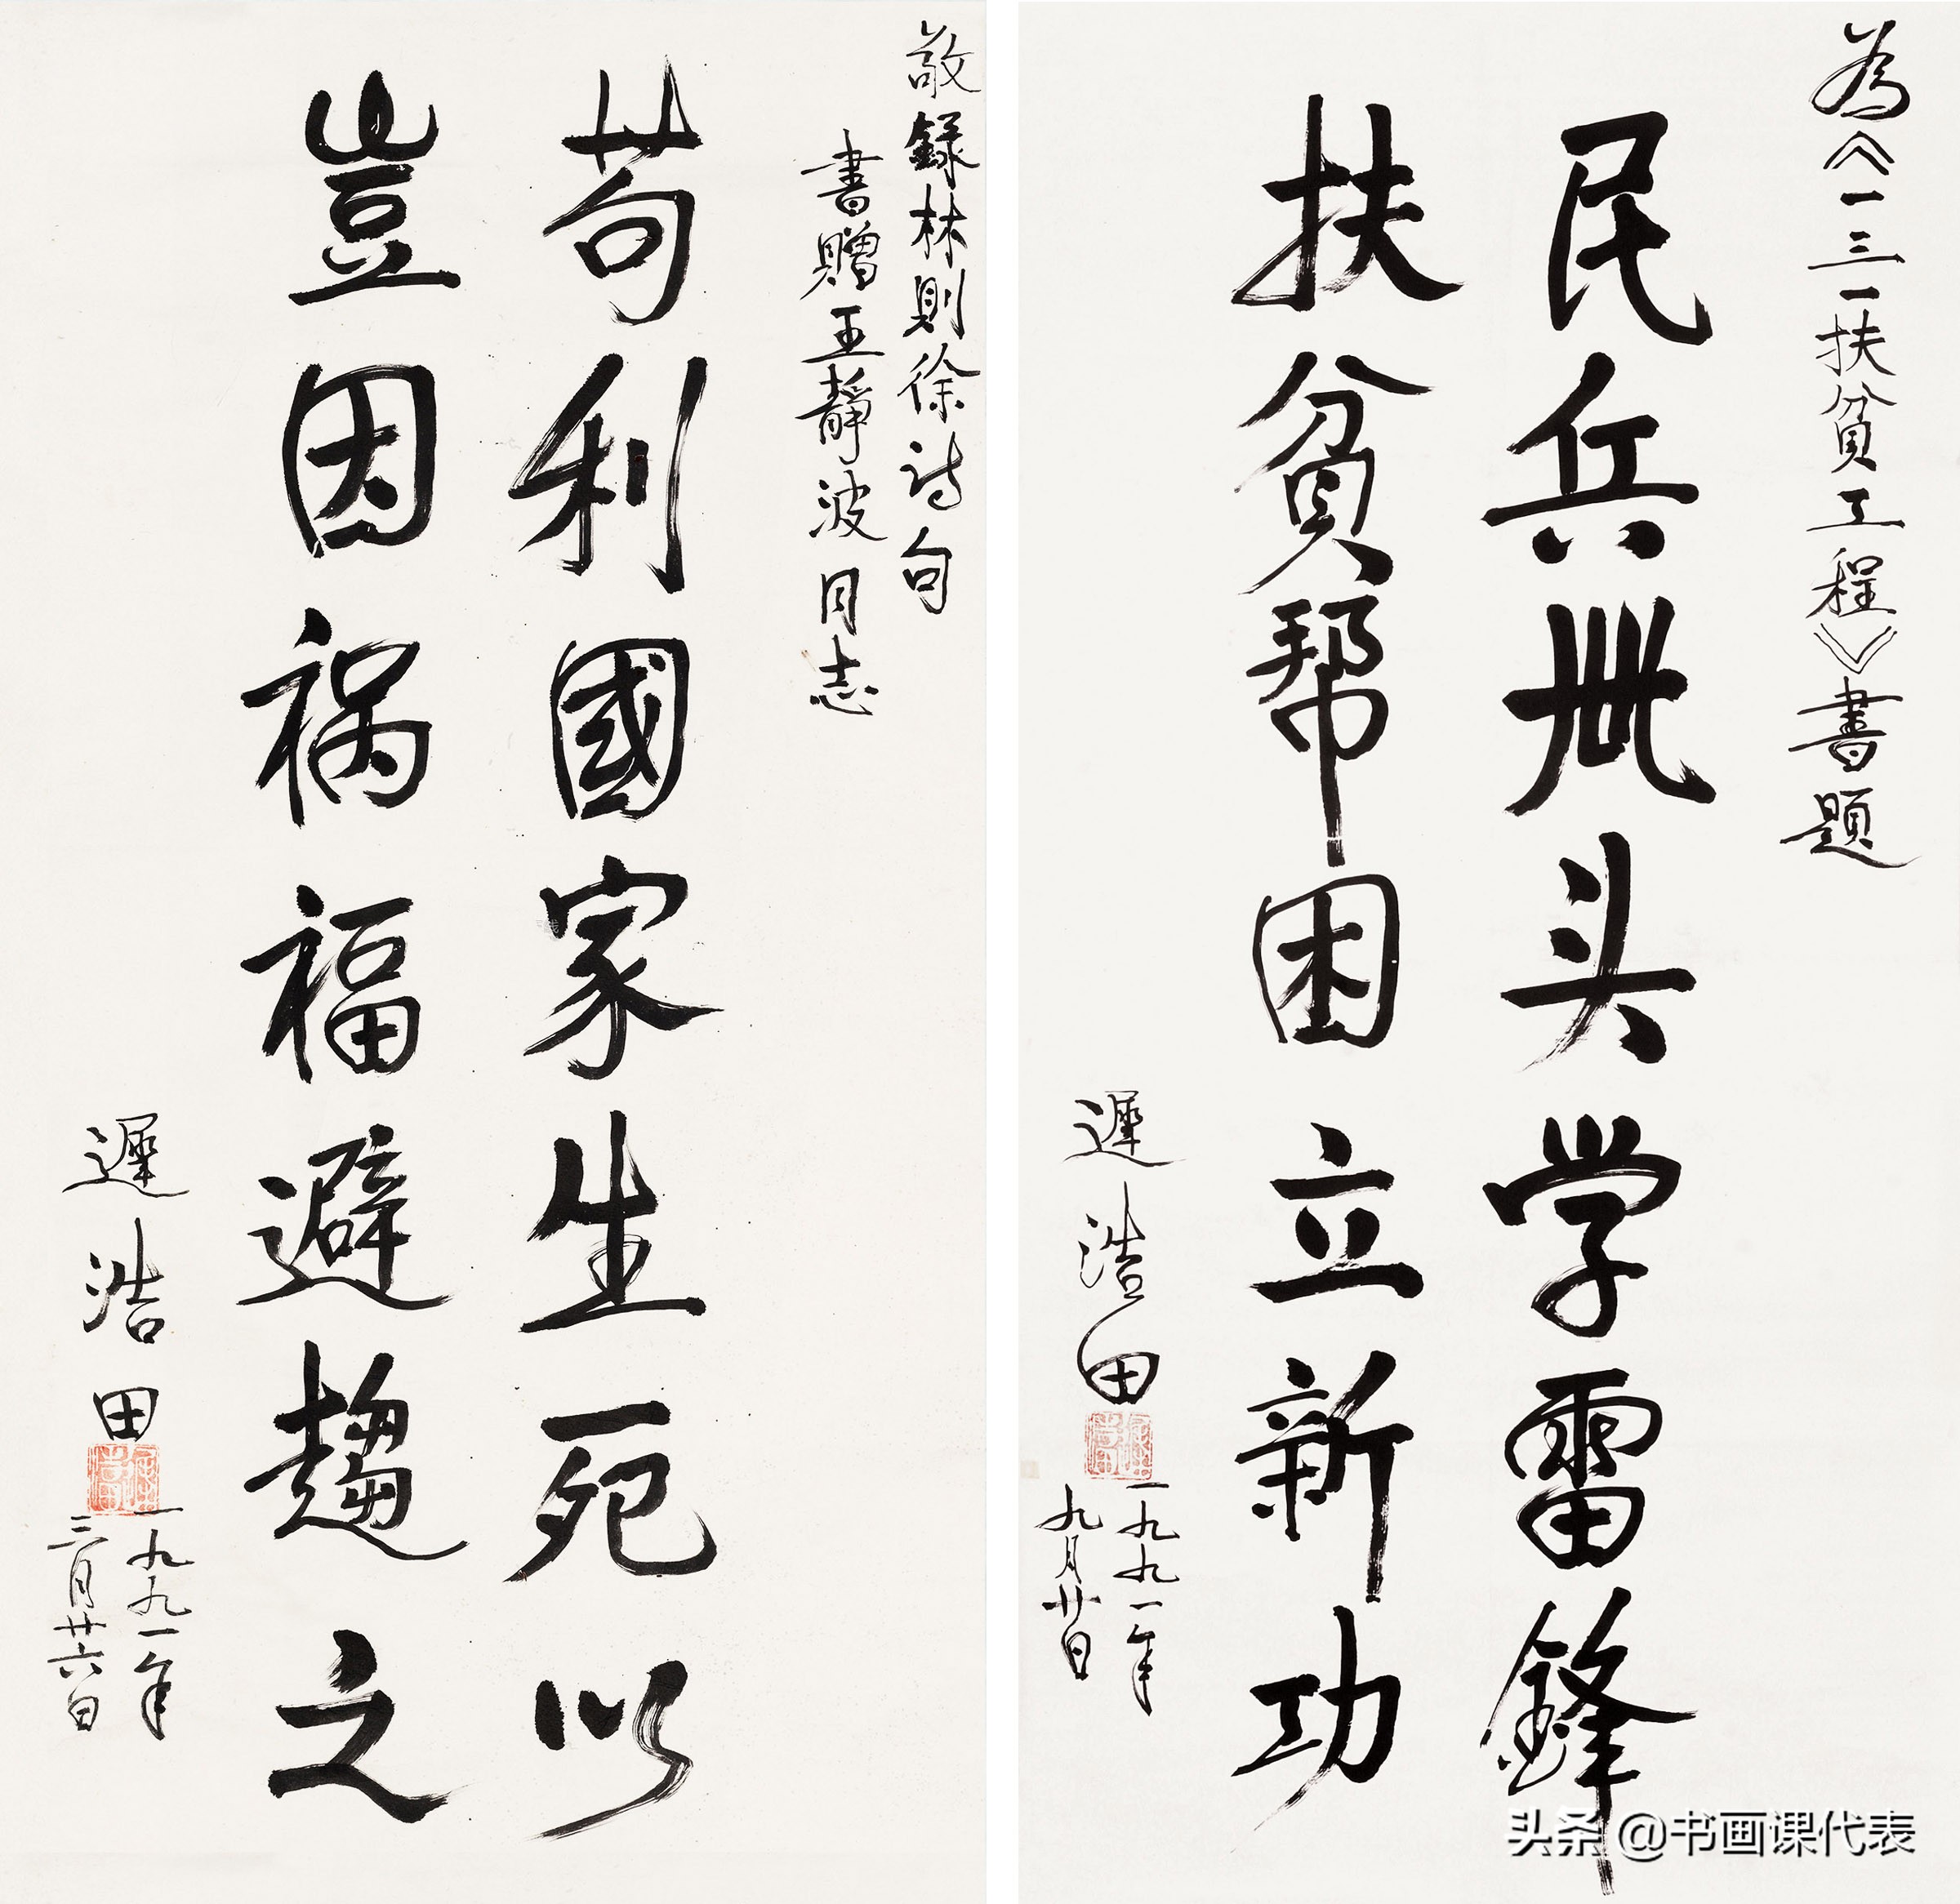 為《一三一扶貧工程》書題
民兵带头学雷鋒
扶貧帮困立新功
遲浩田
一九九一年
九月廿日
敬録林則徐诗句
書贈王靜波同志
苟利國家生死以
豈因祸福避趨之
遲浩田
一九九一年
三月廿六日
头条 @书画课代表